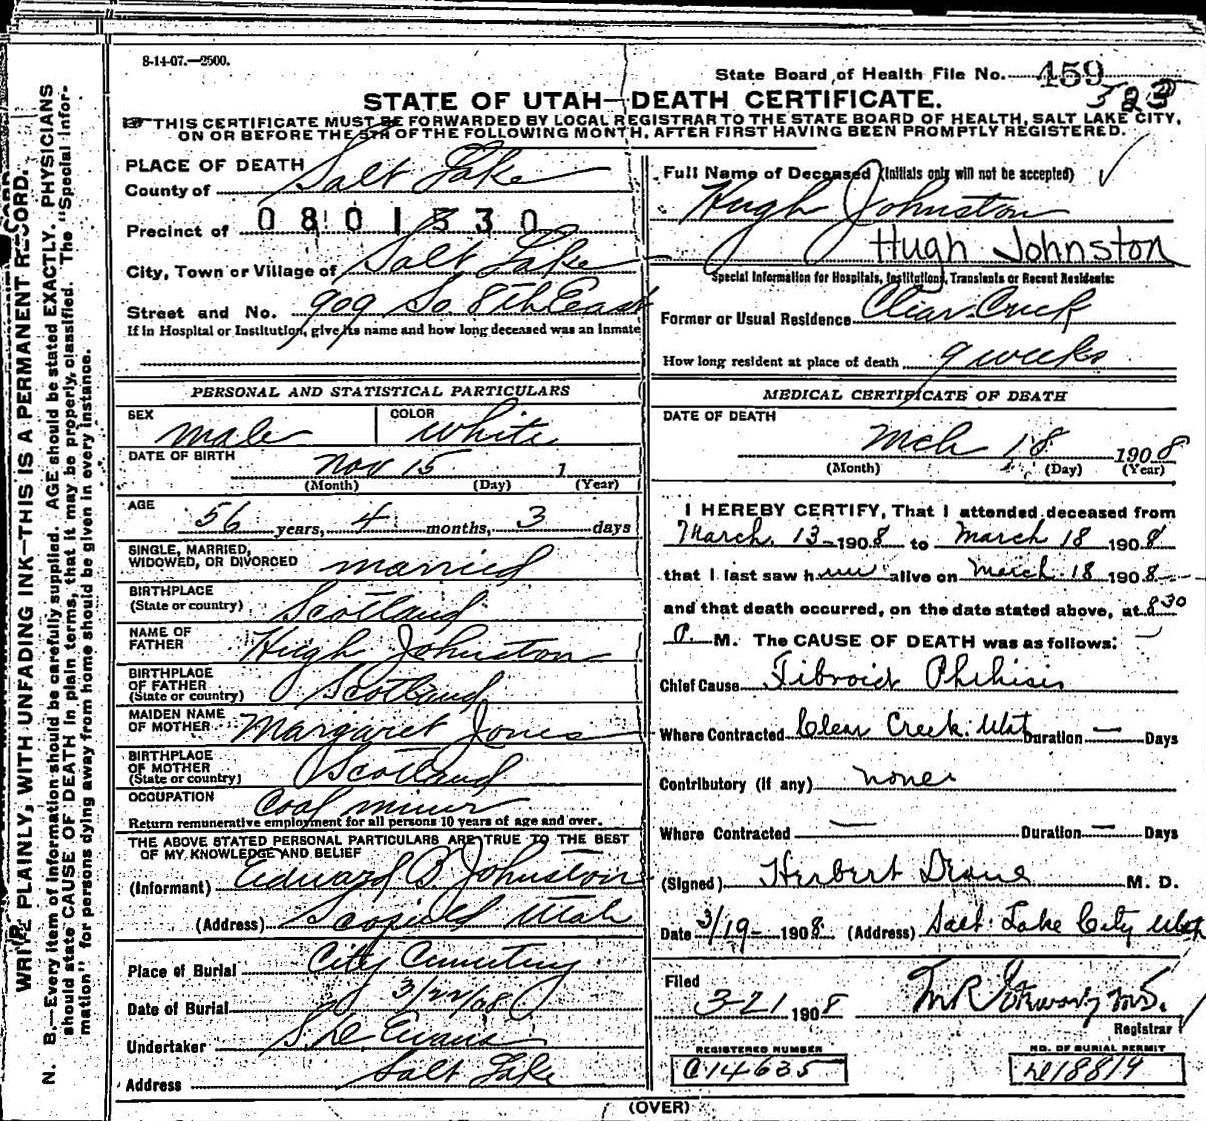 8-14-07.—2500.
State Board of Health File No. 459
523
STATE OF UTAH—DEATH CERTIFICATE.
THIS CERTIFICATE MUST BE FORWARDED BY LOCAL REGISTRAR TO THE STATE BOARD OF HEALTH, SALT LAKE CITY,
ON OR BEFORE THE 5TH OF THE FOLLOWING MONTH, AFTER FIRST HAVING BEEN PROMPTLY REGISTERED.
WRITE PLAINLY, WITH UNFADING INK—THIS IS A PERMANENT RECORD.
N. B.—Every item of information should be carefully supplied. AGE should be stated EXACTLY. PHYSICIANS
should state CAUSE OF DEATH in plain terms, that it may be properly classified. The "Special Infor-
mation" for persons dying away from home should be given in every instance.
PLACE OF DEATH
County of Salt Lake
Precinct of 0801330
City, Town or Village of Salt Lake
Street and No. 909 So. 8th East
If in Hospital or Institution, give its name and how long deceased was an inmate
PERSONAL AND STATISTICAL PARTICULARS
SEX male
COLOR white
DATE OF BIRTH Nov 15 1
(Month) (Day) (Year)
AGE 56 years, 4 months, 3 days
SINGLE, MARRIED,
WIDOWED, OR DIVORCED married
BIRTHPLACE
(State or country) Scotland
NAME OF
FATHER Hugh Johnston
BIRTHPLACE
OF FATHER
(State or country) Scotland
MAIDEN NAME
OF MOTHER Margaret Jones
BIRTHPLACE
OF MOTHER
(State or country) Scotland
OCCUPATION Coal miner
Return remunerative employment for all persons 10 years of age and over.
THE ABOVE STATED PERSONAL PARTICULARS ARE TRUE TO THE BEST
OF MY KNOWLEDGE AND BELIEF
(Informant) Edward B Johnston
(Address) Scofield Utah
Place of Burial City Cemetery
Date of Burial 3/22/08
Undertaker S. D. Evans
Address Salt Lake
Full Name of Deceased (Initials only will not be accepted)
Hugh Johnston
Hugh Johnston
Special Information for Hospitals, Institutions, Transients or Recent Residents:
Former or Usual Residence Clear Creek
How long resident at place of death 9 weeks
MEDICAL CERTIFICATE OF DEATH
DATE OF DEATH
Mch 18 1908
(Month) (Day) (Year)
I HEREBY CERTIFY, That I attended deceased from
March 13 1908 to March 18 1908
that I last saw him alive on March 18 1908
and that death occurred, on the date stated above, at 830
P. M. The CAUSE OF DEATH was as follows:
Chief Cause Fibroid Phthisis
Where Contracted Clear Creek Utah Duration — Days
Contributory (if any) none
Where Contracted — Duration — Days
(Signed) Herbert M. D.
Date 3/19 1908 (Address) Salt Lake City Utah
Filed
3-21 1908
Registrar
REGISTERED NUMBER
C14635
NO. OF BURIAL PERMIT
18819
(OVER)